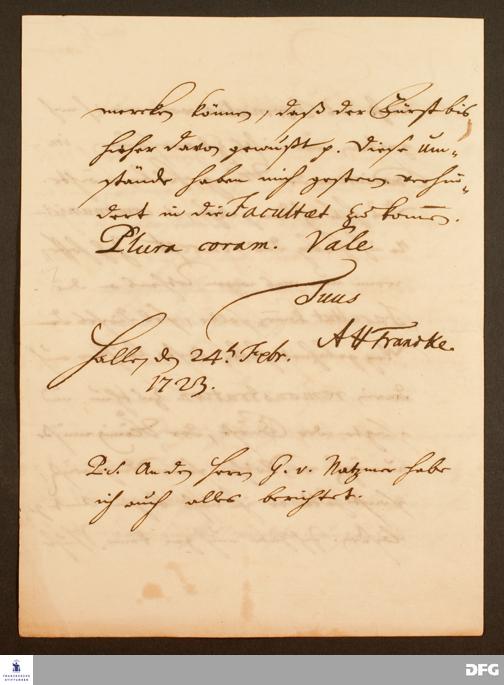 mercken können, daß der Fürst bis
hieher davon gewußt p. Diese Um-
stände haben mich gestern verhin-
dert in die Facultæt zu kom̅en.
Plura coram. Vale
Tuus
AHFrancke.
Halle, den 24.t Febr.
1723.
P.S. An den Herrn G. v. Natzmer habe
ich auch alles berichtet.
FRANCKESCHE
STIFTUNGEN
DFG